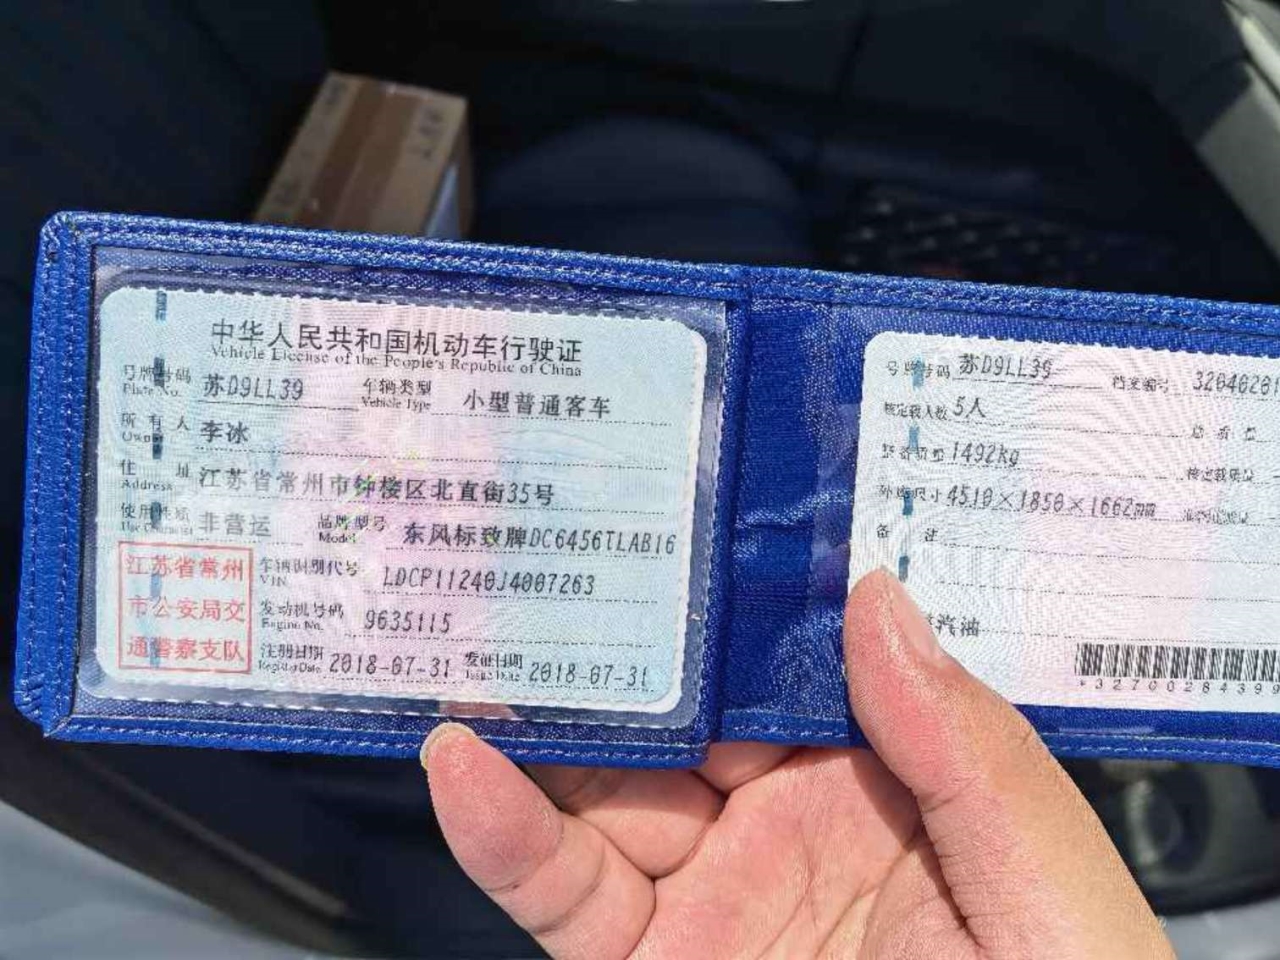 中华人民共和国机动车行驶证
Vehicle License of the People's Republic of China
号牌号码 苏D9LL39 车辆类型 小型普通客车
Plate No. Vehicle Type
所有人 李冰
Owner
住址 江苏省常州市钟楼区北直街35号
Address
使用性质 非营运 品牌型号 东风标致牌DC6456TLAB16
Use Character Model
江苏省常州
市公安局交
通警察支队
车辆识别代号 LDCP11240J4007263
VIN
发动机号码 9635115
Engine No.
注册日期 2018-07-31 发证日期 2018-07-31
Register Date Issue Date
号牌号码 苏D9LL39 档案编号 32040201
核定载人数 5人 总质量
整备质量 1492kg 核定载质量
外廓尺寸 4510×1850×1662mm
备注
汽油